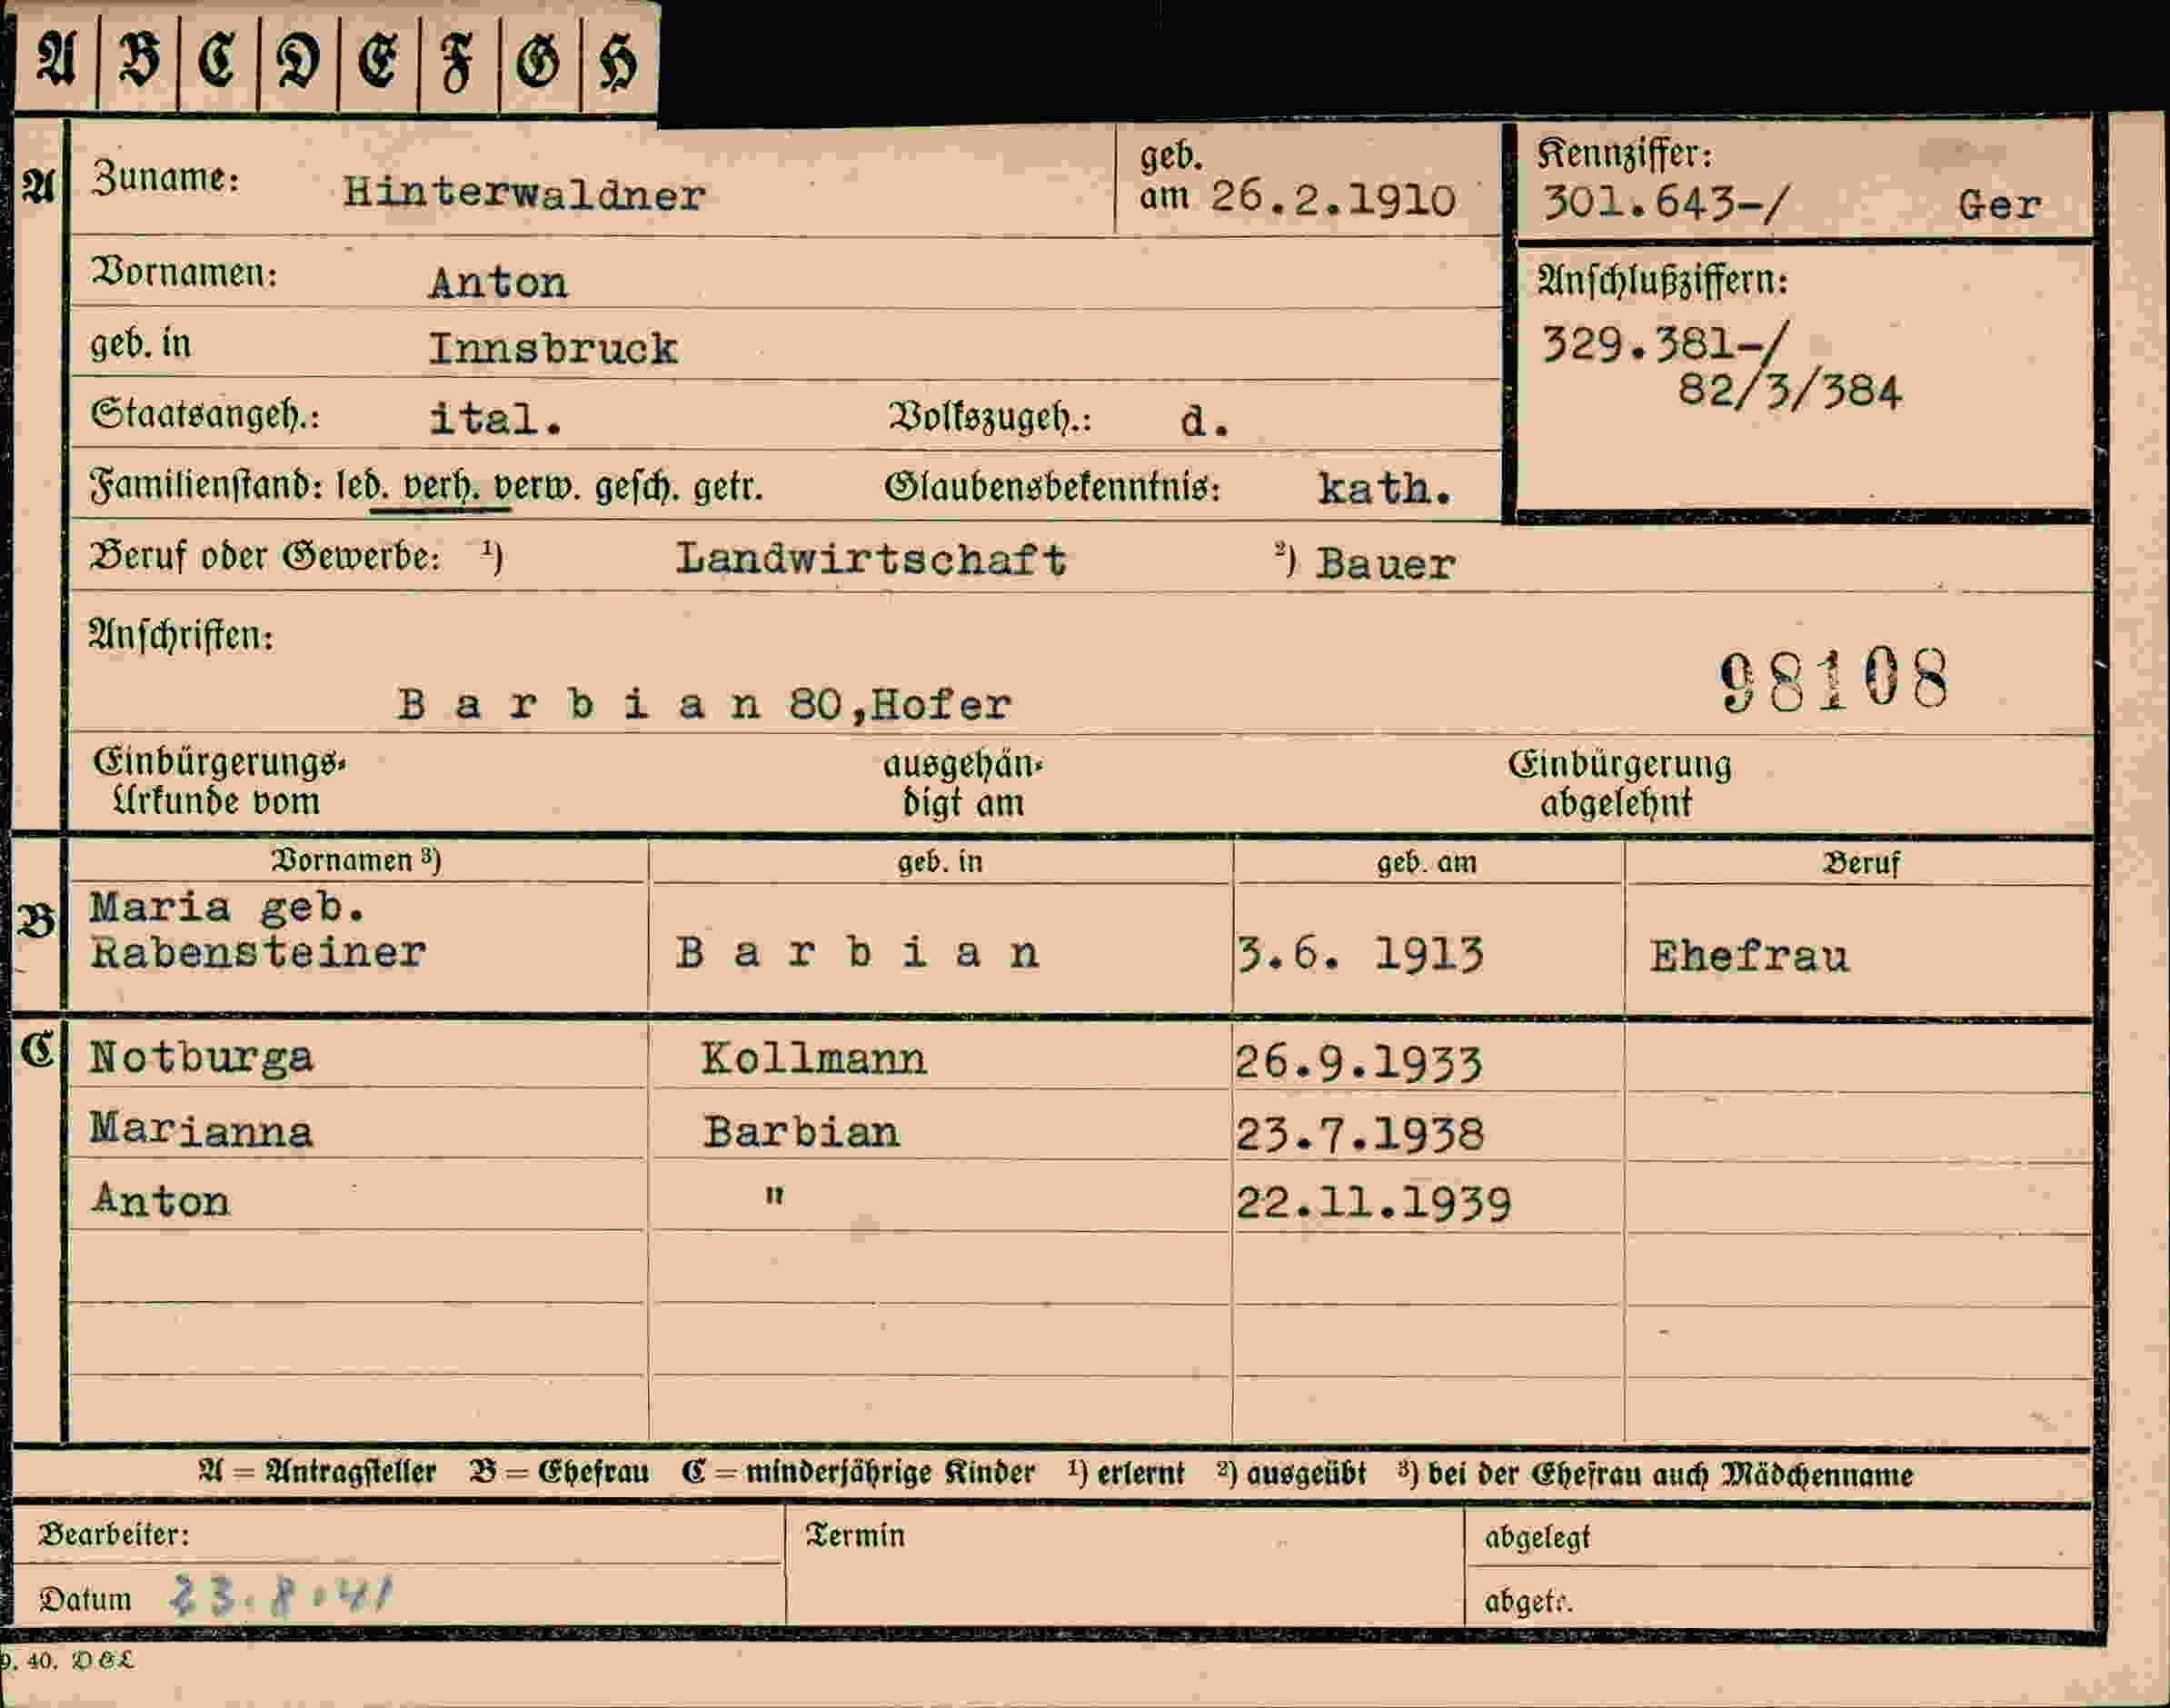 A B C D E F G H
A Zuname: Hinterwaldner geb. am 26.2.1910 Kennziffer: 301.643-/ Ger
Vornamen: Anton Anschlußziffern:
geb. in Innsbruck 329.381-/
82/3/384
Staatsangeh.: ital. Volkszugeh.: d.
Familienstand: led. verh. verw. gesch. getr. Glaubensbekenntnis: kath.
Beruf oder Gewerbe: ¹) Landwirtschaft ²) Bauer
Anschriften:
Barbian 80,Hofer 98108
Einbürgerungs- ausgehän- Einbürgerung
Urkunde vom digt am abgelehnt
Vornamen ³) geb. in geb. am Beruf
B Maria geb.
Rabensteiner Barbian 3.6. 1913 Ehefrau
C Notburga Kollmann 26.9.1933
Marianna Barbian 23.7.1938
Anton " 22.11.1939
A = Antragsteller B = Ehefrau C = minderjährige Kinder ¹) erlernt ²) ausgeübt ³) bei der Ehefrau auch Mädchenname
Bearbeiter: Termin abgelegt
Datum 23.8.41 abgetr.
9. 40. D&L